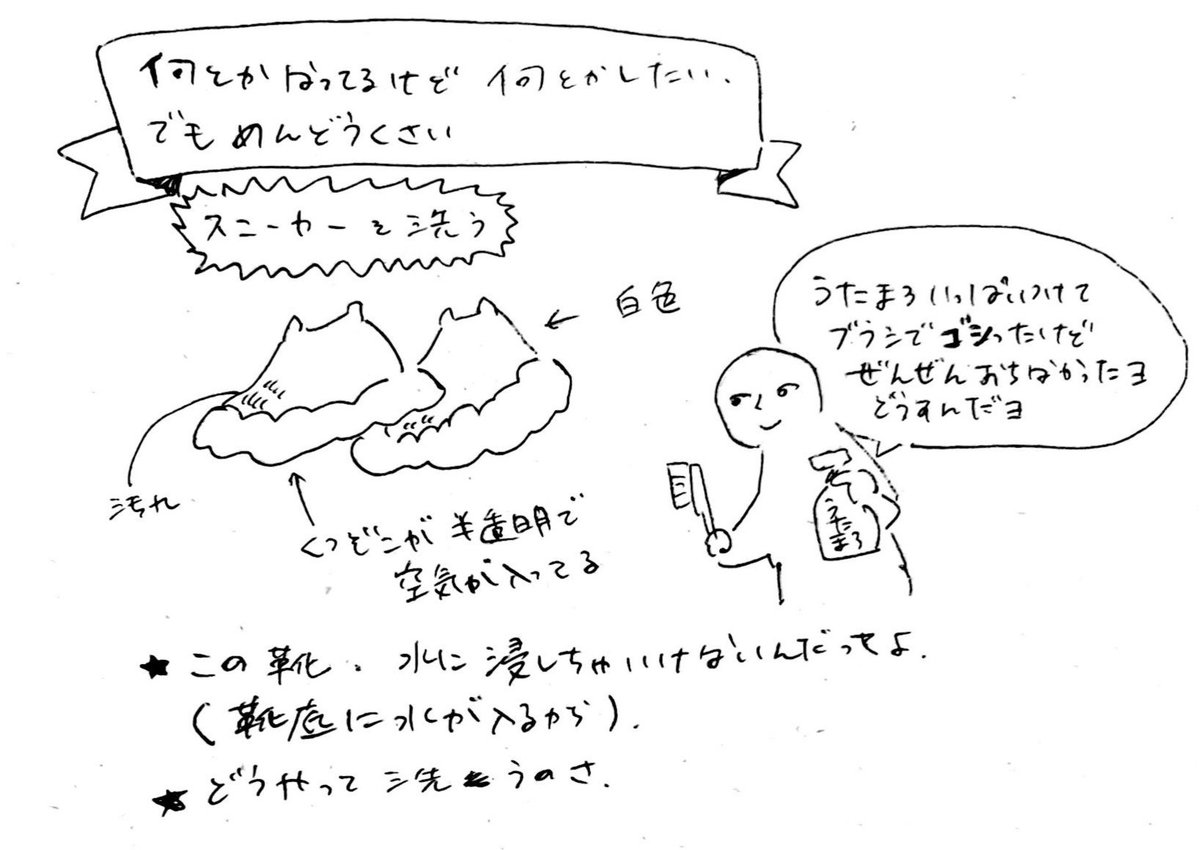 何とかなってるけど 何とかしたい.
でも めんどうくさい
スニーカーを洗う
白色
うたまろいっぱいつけて
ブラシでゴシったけど
ぜんぜんおちなかったヨ
どうすんだヨ
うたまろ
汚れ
くつぞこが半透明で
空気が入ってる
★この靴、水に浸しちゃいけないんだってよ.
(靴底に水が入るから).
★どうやって洗うのさ.